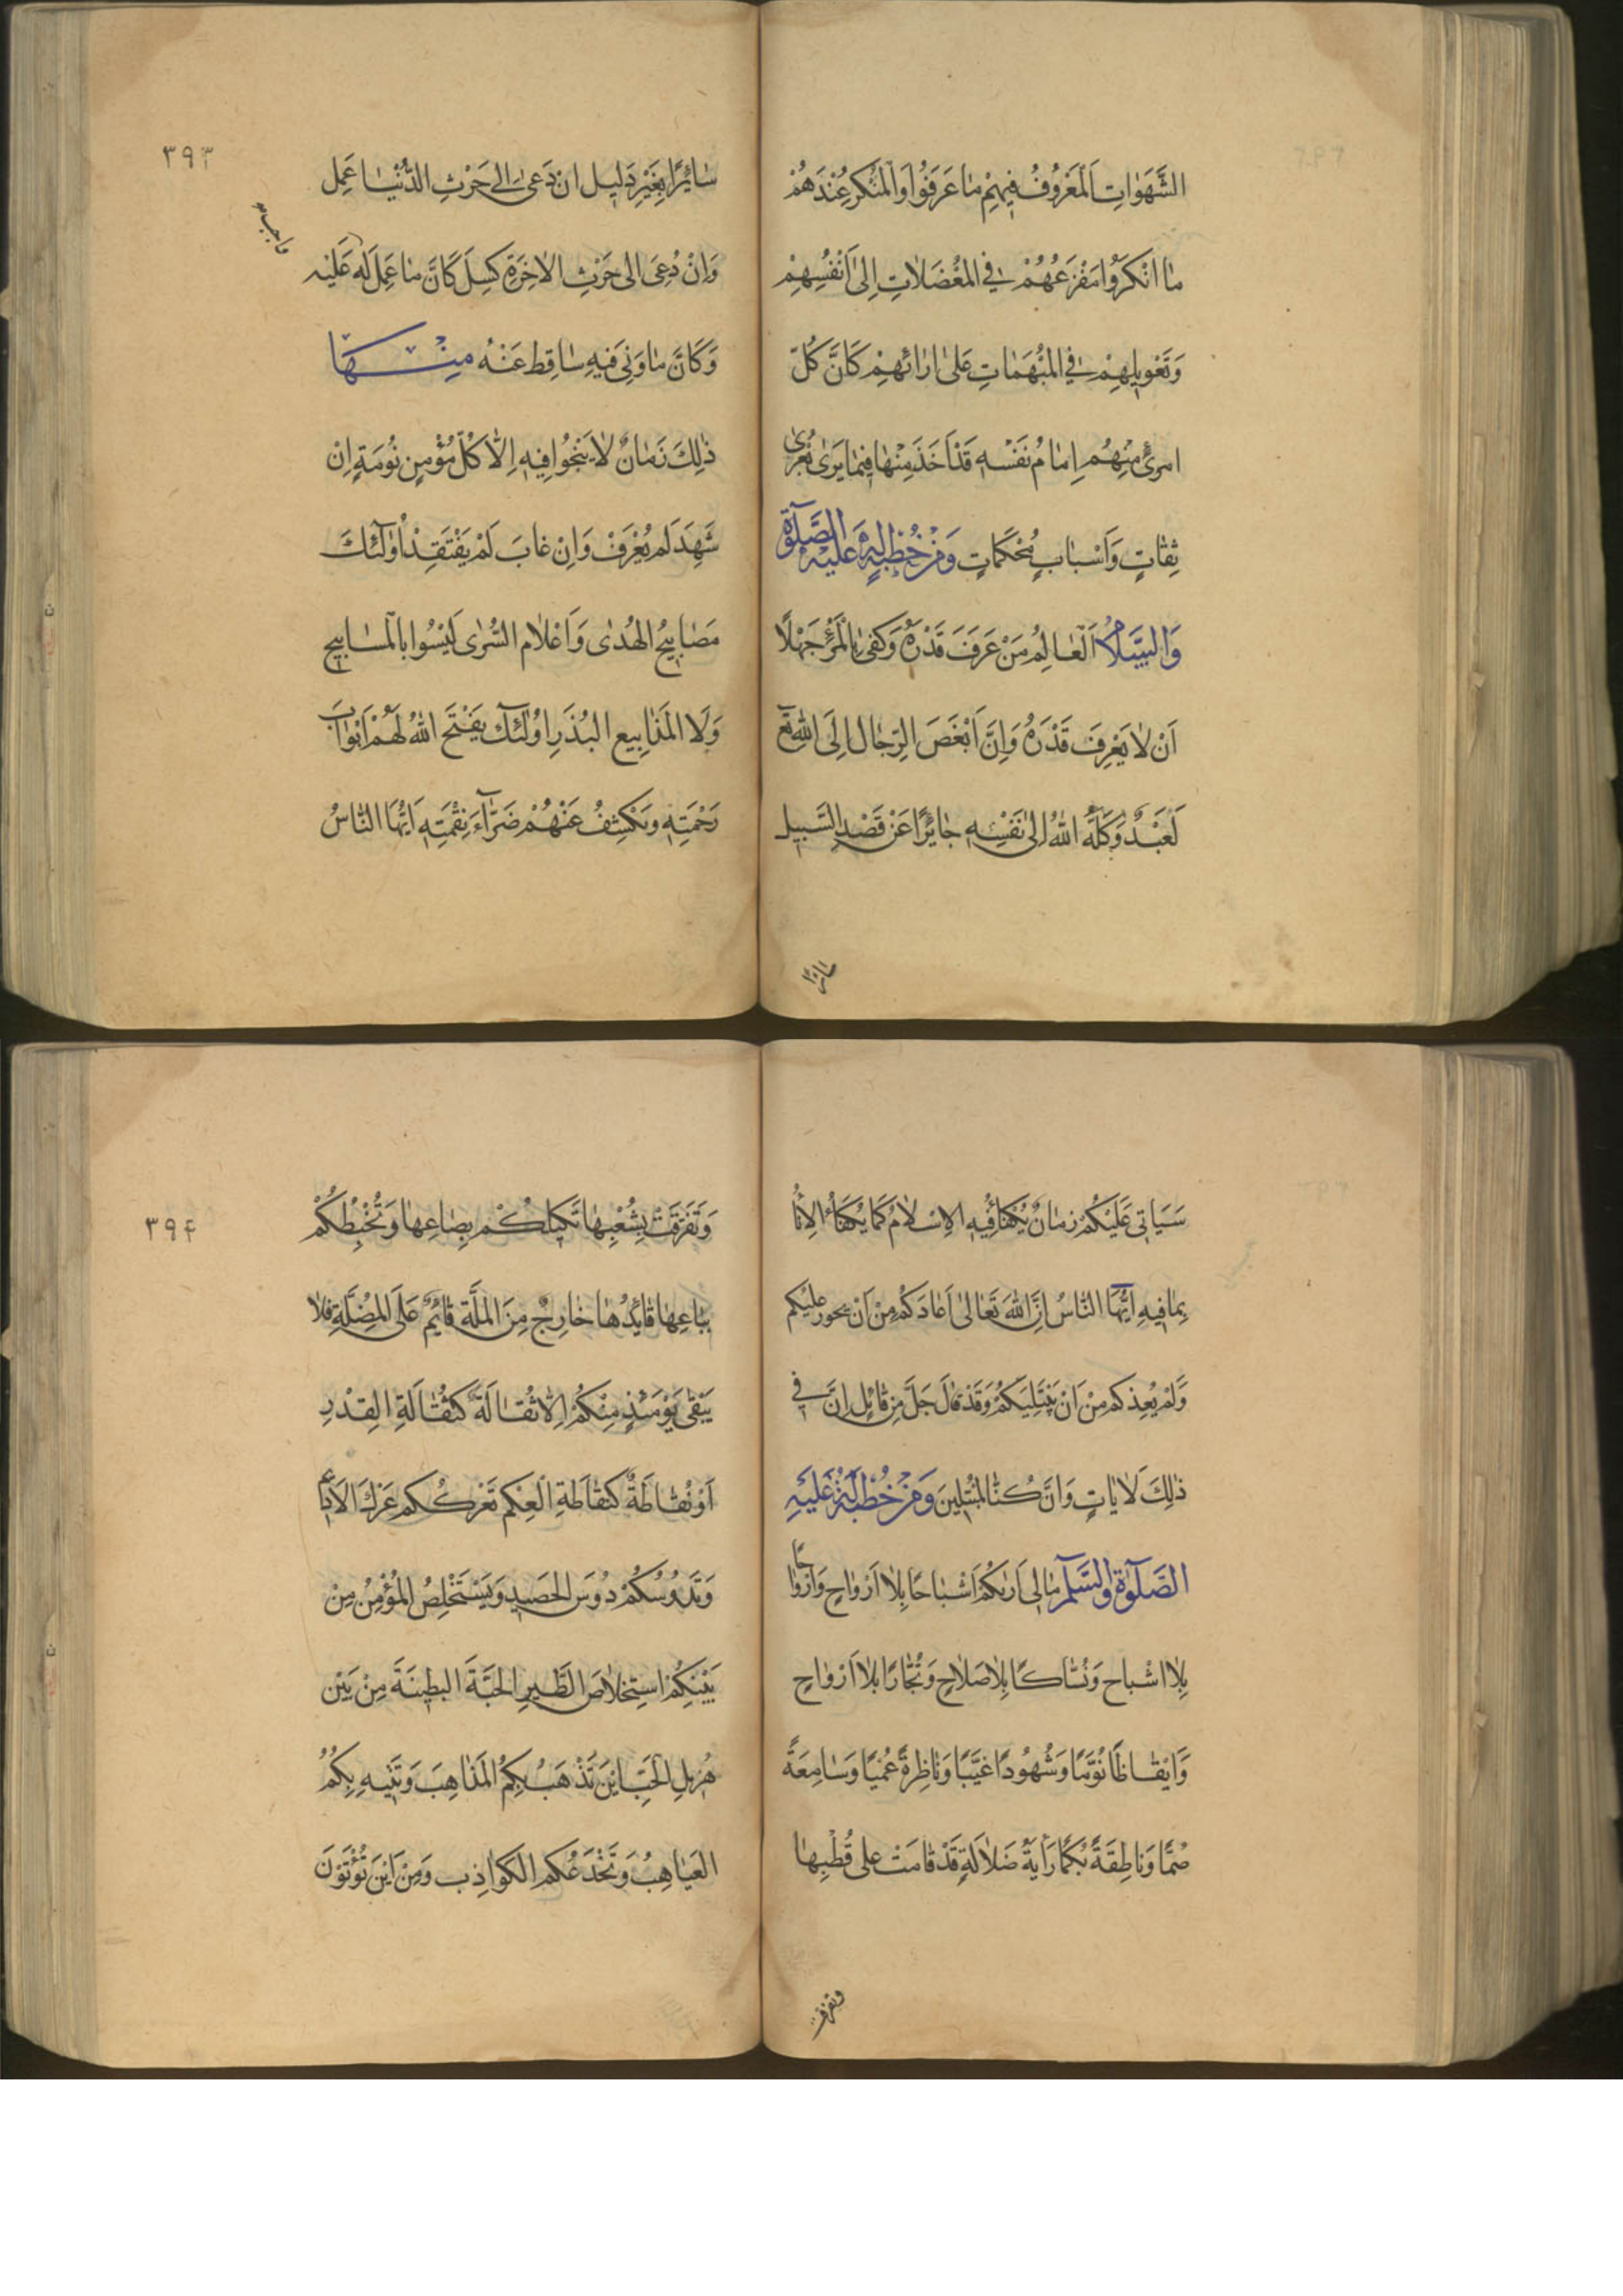 الشَّهَوٰاتِ اَلْمَعْرُوفُ فِيهِمْ مٰا عَرَفُوُا وَالْمُنْكَرُ عِنْدَهُمْ
مٰا اَنْكَرَوُا مَفْزَعُهُمْ فِي الْمُعْضَلاٰتِ اِلىٰ اَنْفُسِهِمْ
وَتَعْوِيلِهِمْ فِي الْمُبْهَمٰاتِ عَلىٰ ارٰائِهِمْ كَانَّ كُلَّ
امرئٍ مِنْهُم اِمٰامُ نَفْسِهِ قَدْ اَخَذَ مِنْهٰا فِيمٰا يَرىٰ بُعرىٰ
ثِقٰاتٍ وَاَسْبٰابٍ مُحْكَمٰاتٍ وَمِنْ خُطْبَةٍ لِهُ عَلَيْهِ الصَّلوٰةُ
وَالسَّلاٰمُ اَلْعٰالِمُ مَنْ عَرَفَ قَدْرَهُ وَكَفىٰ بِالْمَرْءِ جَهْلًا
اَنْ لاٰ يَعْرِفَ قَدْرَهُ وَاِنَّ اَبْغَضَ الرِّجٰالِ اِلَى اللهِ تَعٰ
لَعَبْدٌ وَكَلَهُ اللهُ اِلىٰ نَفْسِهِ جٰائِرًا عَنْ قَصْدِ السَّبِيلِ
سائرا
٣٩٣
سٰائِرًا بِغَيْرِ دَلِيلٍ اِنْ دَعىٰ اِلى حَرْثِ الدُّنْيٰا عَمِلَ
وَاِنْ دُعِىَ الى حَرْثِ الاٰخِرَةِ كَسِلَ كَانَّ مٰا عَمِلَ لَهُ عَلَيْهِ
واجب
وَكَانَّ مٰا وَنىٰ فِيهِ سٰاقِط عَنْهُ مِنْهٰا
ذٰلِكَ زَمٰانٌ لاٰ يَنْجُوا فِيهِ اِلاّٰ كُلّ مُؤْمِنٍ نُوَمَةٍ اِنْ
شَهِدَ لَم يُعْرَفْ وَاِنْ غٰابَ لَمْ يَفْتَقِدْ اُولٰٓئِكَ
مَصٰابِيحُ الهُدىٰ وَاَعْلاٰم السُّرىٰ لَيْسُوا بِالْمَسٰابِيحِ
وَلَا الْمَذٰابِيع البُذَرِ اوُلٰٓئِك يَفْتَحَ اللهُ لَهُمْ اَبْوٰابَ
رَحْمَتِهِ وَيَكْشِفُ عَنْهُمْ ضَرّٰآءَ نِقْمَتِهِ اَيُّهَا النّٰاسُ
سَيَاتِى عَلَيْكُمْ زمٰانٌ يُكْفَأُ فِيهِ الاِسْلاٰمُ كَمٰا يُكْفَأُ الاِنٰا
بِمٰا فِيهِ اَيُّهَا النّٰاسُ اِنَّ اللهَ تَعٰالىٰ اَعٰادَكُمْ مِنْ اَنْ يجور عليكم
وَلَمْ يُعِذكم مِنْ اَنْ يَبْتَلِيَكُمْ وَقَدْ قٰالَ جَلَّ مِن قٰائِلٍ اِنَّ في
ذٰلِكَ لَاٰيٰاتٍ وَانْ كُنّٰا لَمُبْتَلِينَ وَمِنْ خُطْبَةٍ لَهُ عَلَيْهِ
الصَّلوٰةُ وَالسَّلٰم مٰالِى اَرٰىكُمْ اَشْبٰاحًا بِلاٰ اَرْوٰاحٍ وَاَرْوٰاحًا
بِلاٰ اشْبٰاح وَنُسّٰاكًا بِلاٰ صَلاٰحٍ وَتُجّٰارًا بلاٰ اَرْوٰاحٍ
وَاَيْقٰاظًا نُوَّمًا وَشُهُودًا غيَّبًا وَنٰاظِرةً عُمْيًا وَسٰامِعَةً
صُمًّا وَنٰاطِقَةً بُكْمًا رَايَةُ ضَلاٰلَةٍ قَدْ قٰامَتْ على قُطْبِهٰا
وتفرقت
٣٩۴
وَتَفَرَّقَتْ بِشُعْبِهٰا تَكِيلُكُمْ بِصٰاعِهٰا وَتُخْبِطُكُمْ
بِبٰاعِهٰا قٰائِدُهٰا خٰارِجٌ مِنَ الْمِلَّةِ قٰائِمٌ عَلَى الْمِضَلَّةِ فَلاٰ
يَبْقٰى يَوْمَئِذٍ مِنْكُمْ اِلاّٰ ثُفٰالَةٌ كَثُفٰالَةِ القِدْرِ
اَوْ نُفٰاطَةٌ كَنُفٰاطَةِ الْعِكْم تَعْرككُم عَرْكَ الْاَدِيمِ
وَتَدُوسُكُمْ دُوسَ الْحَصِيدِ وَيَسْتَخْلِصُ الْمُؤْمِنُ مِنْ
بَيْنِكُمْ اِستِخلاٰصَ الطَّيرِ الحَبَّةَ البَطِينَةَ مِنْ بَيْنِ
هَزِيلِ الحَبِّ اَيْنَ تَذْهَبُ بِكُمُ الْمَذٰاهِبَ وَتَتِيهِ بِكُمُ
الغَيٰاهِبُ وَتَخْدَعُكُم الْكَوٰاذِب وَمِنْ اَيْنَ تُؤْتَوْنَ